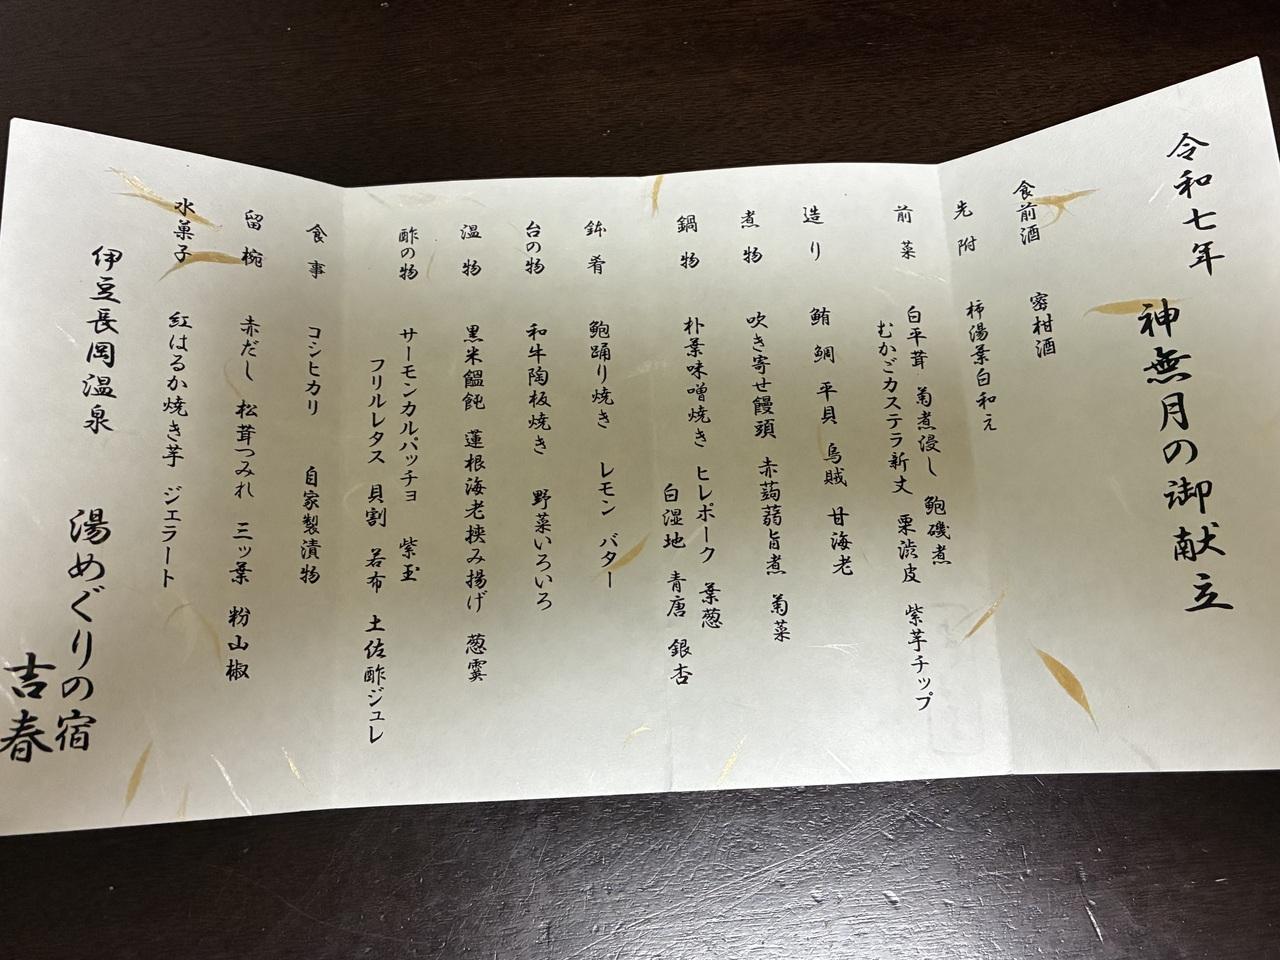 令和七年 神無月の御献立
食前酒 密柑酒
先附 柿湯葉白和え
前菜 白平茸 菊煮浸し 鮑磯煮
むかごカステラ新丈 栗渋皮 紫芋チップ
造り 鮪 鯛 平貝 烏賊 甘海老
煮物 吹き寄せ饅頭 赤蒟蒻旨煮 菊菜
鍋物 朴葉味噌焼き ヒレポーク 葉葱
白湿地 青唐 銀杏
鉢肴 鮑踊り焼き レモン バター
台の物 和牛陶板焼き 野菜いろいろ
温物 黒米饂飩 蓮根海老挟み揚げ 葱
酢の物 サーモンカルパッチョ 紫玉
フリルレタス 貝割 若布 土佐酢ジュレ
食事 コシヒカリ 自家製漬物
留椀 赤だし 松茸つみれ 三ッ葉 粉山椒
水菓子 紅はるか焼き芋 ジェラート
伊豆長岡温泉 湯めぐりの宿
吉春